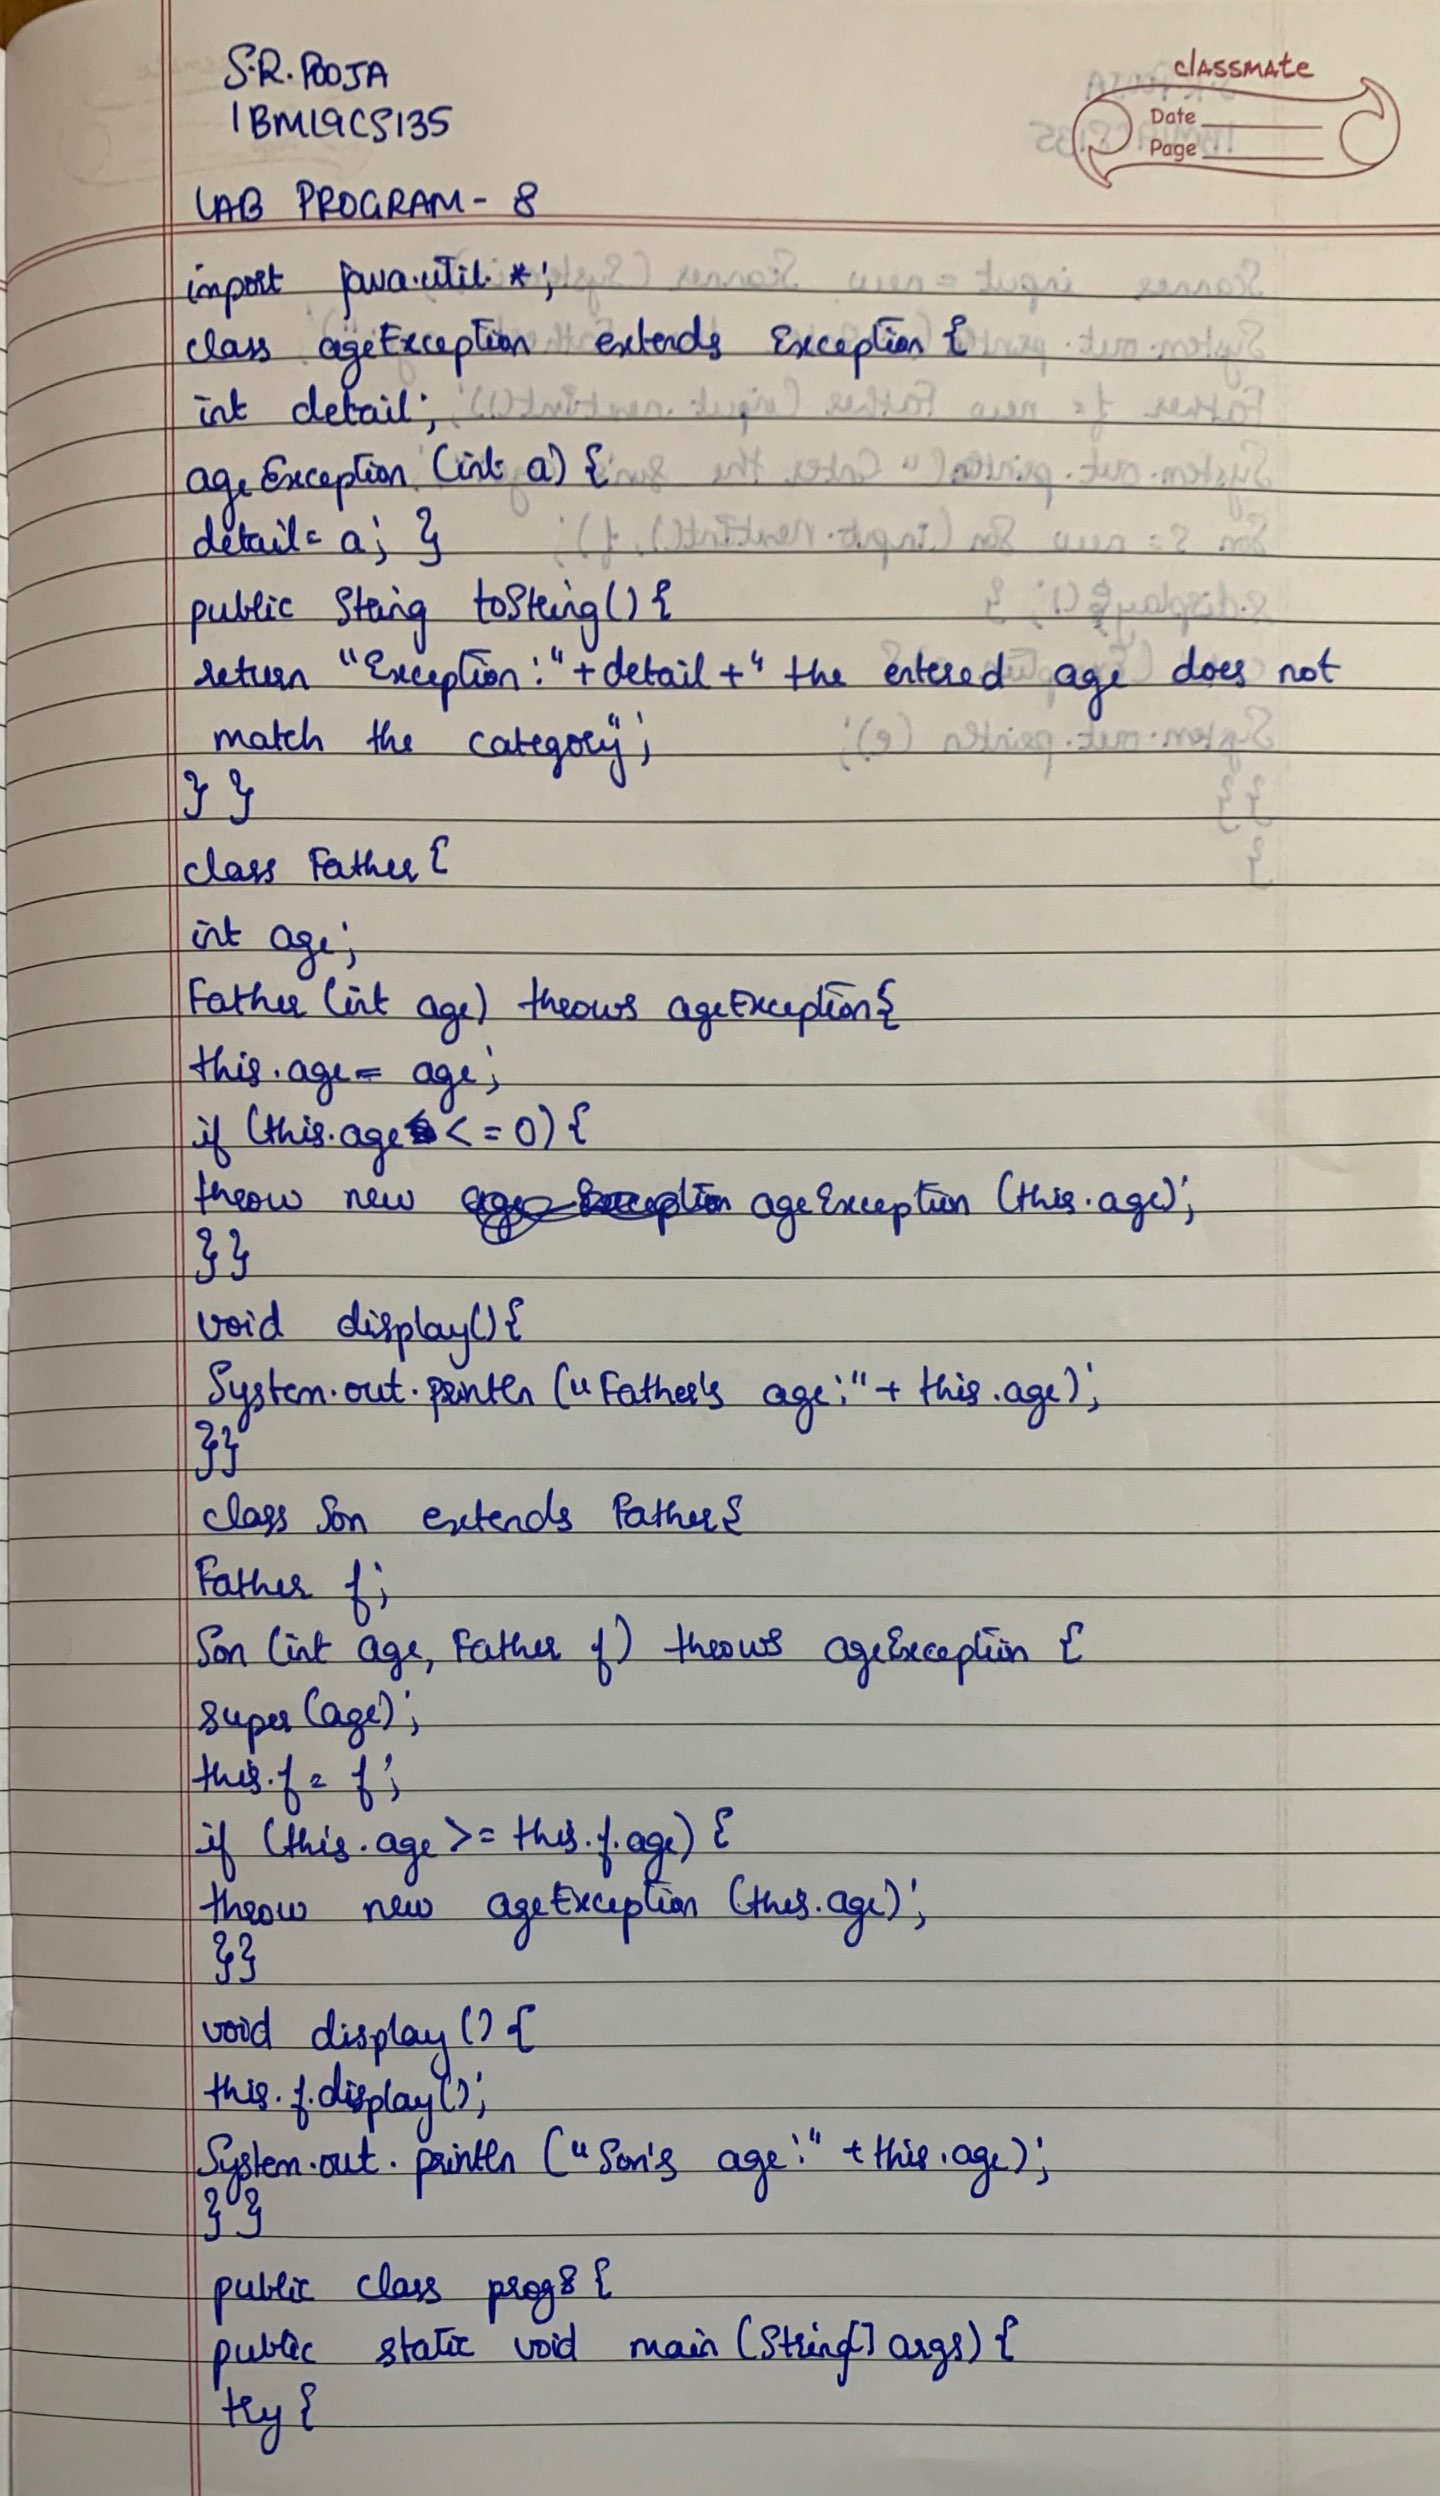 S.R. POOJA
1BM19CS135
classmate
Date
Page
LAB PROGRAM - 8
import java.util.*;
class ageException extends Exception {
int detail;
ageException (int a) {
detail = a; }
public String toString() {
return "Exception:" + detail + " the entered age does not
match the category";
} }
class Father {
int age;
Father (int age) throws ageException {
this.age = age;
if (this.age <= 0) {
throw new ageException (this.age);
}}
void display() {
System.out.println ("Father's age:" + this.age);
}}
class Son extends Father {
Father f;
Son (int age, Father f) throws ageException {
super (age);
this.f = f;
if (this.age >= this.f.age) {
throw new ageException (this.age);
}}
void display () {
this.f.display();
System.out.println ("Son's age:" + this.age);
} }
public class prog8 {
public static void main (String[] args) {
try {